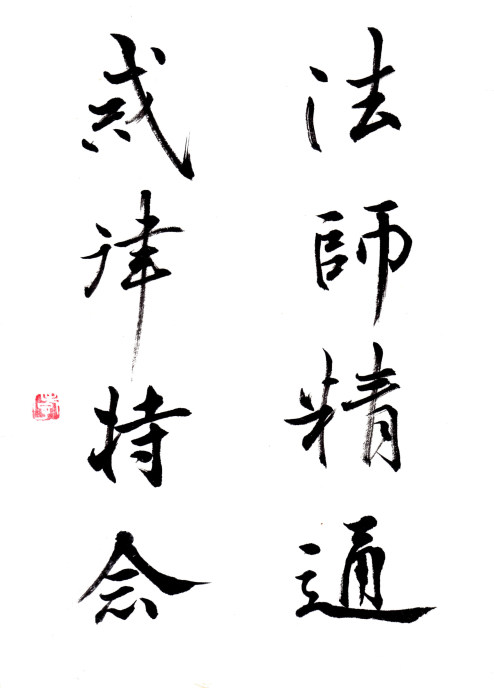 法師精通
戒律持念